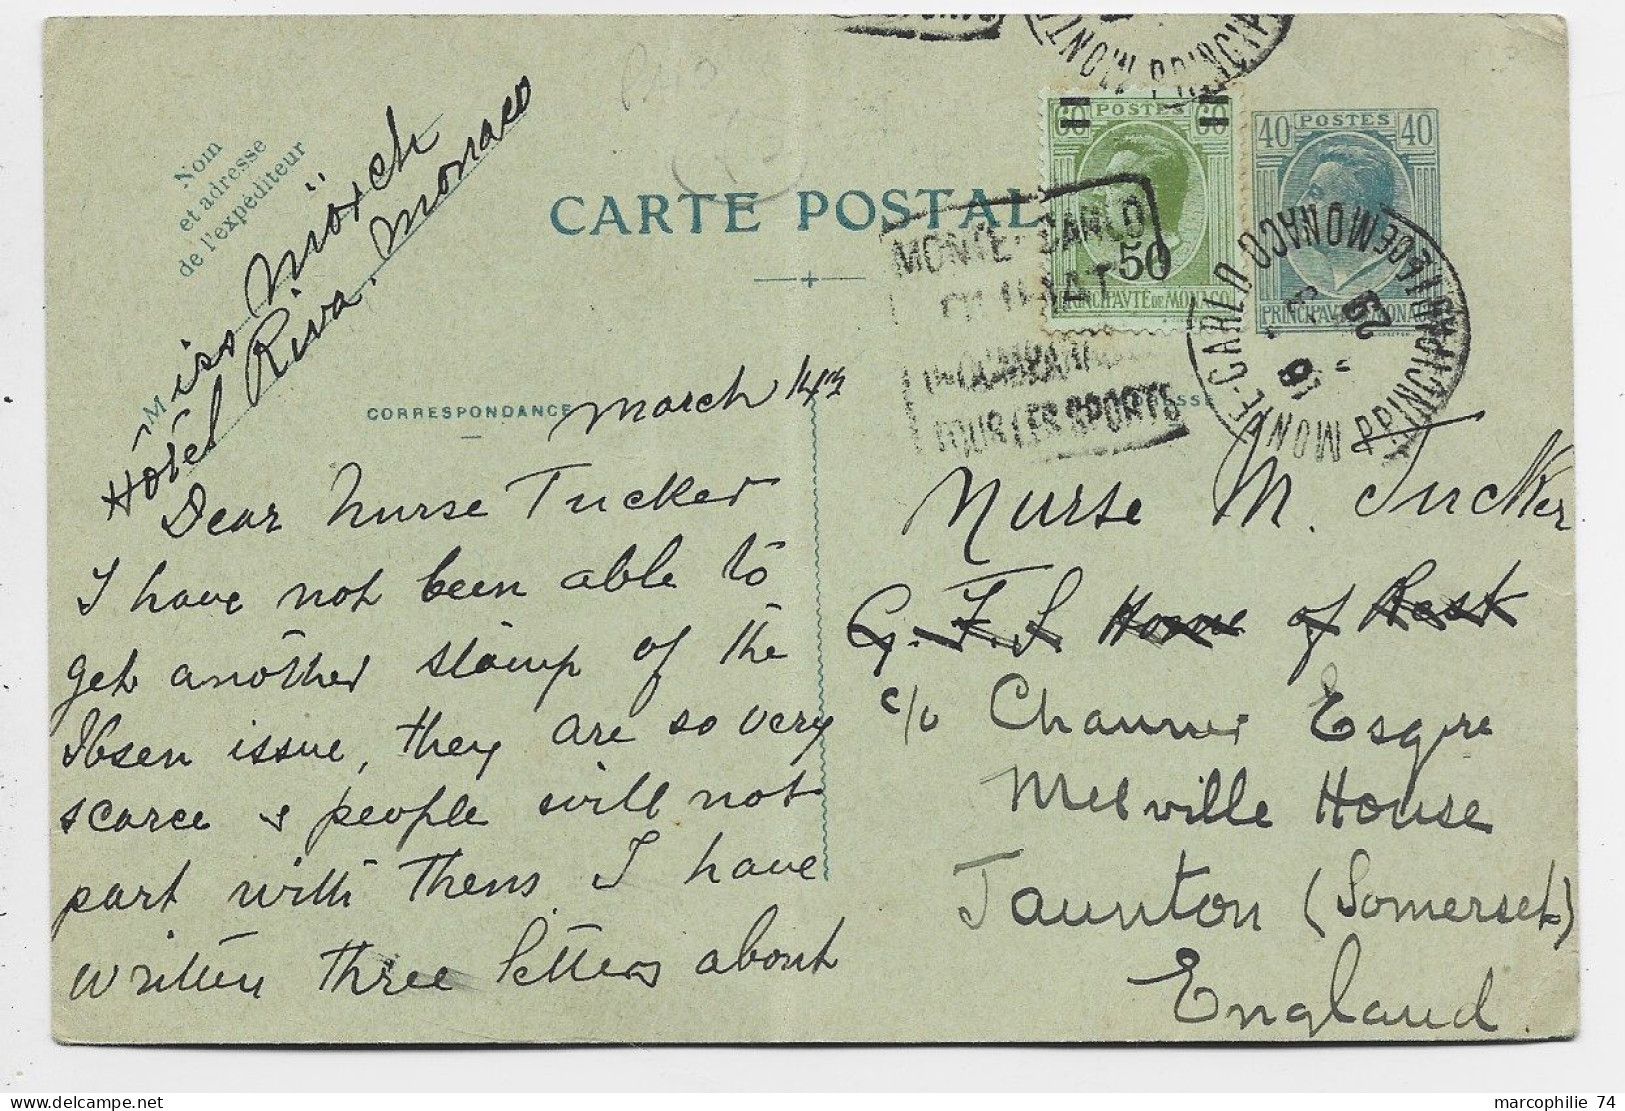 Nom
et adresse
de l'expéditeur
Miss Mörch
Hôtel Riva. Monaco
CARTE POSTALE
60 POSTES 60
50
PRINCIPAVTÉ DE MONACO
40 POSTES 40
PRINCIPAVTÉ DE MONACO
MONTE-CARLO
CLIMAT
INCOMPARABLE
TOUS LES SPORTS
MONTE-CARLO
PRINCIPAUTÉ DE MONACO
CORRESPONDANCE
March 14th
Dear Nurse Tucker
I have not been able to
get another stamp of the
Ibsen issue, they are so very
scarce & people will not
part with them. I have
written three letters about
Nurse M. Tucker
G.F.S. Home of Rest
c/o Channer Esqre
Melville House
Taunton (Somerset)
England.
marcophilie 74